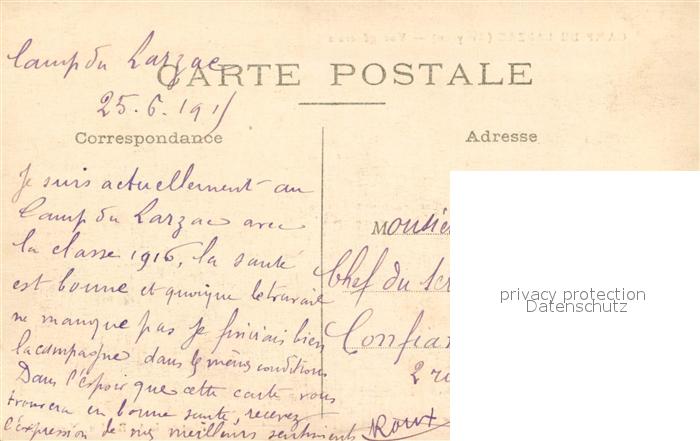 Camp du Larzac
CARTE POSTALE
25.6.1915
Correspondance
Adresse
Je suis actuellement au
Camp du Larzac avec
la classe 1916, la santé
est bonne et quoique le travail
ne manque pas je finirais bien
la campagne dans les mêmes conditions
Dans l'espoir que cette carte vous
trouvera en bonne santé, recevez
l'expression de mes meilleurs sentiments
Roux
Monsie
Chef du
Confian
2
privacy protection
Datenschutz